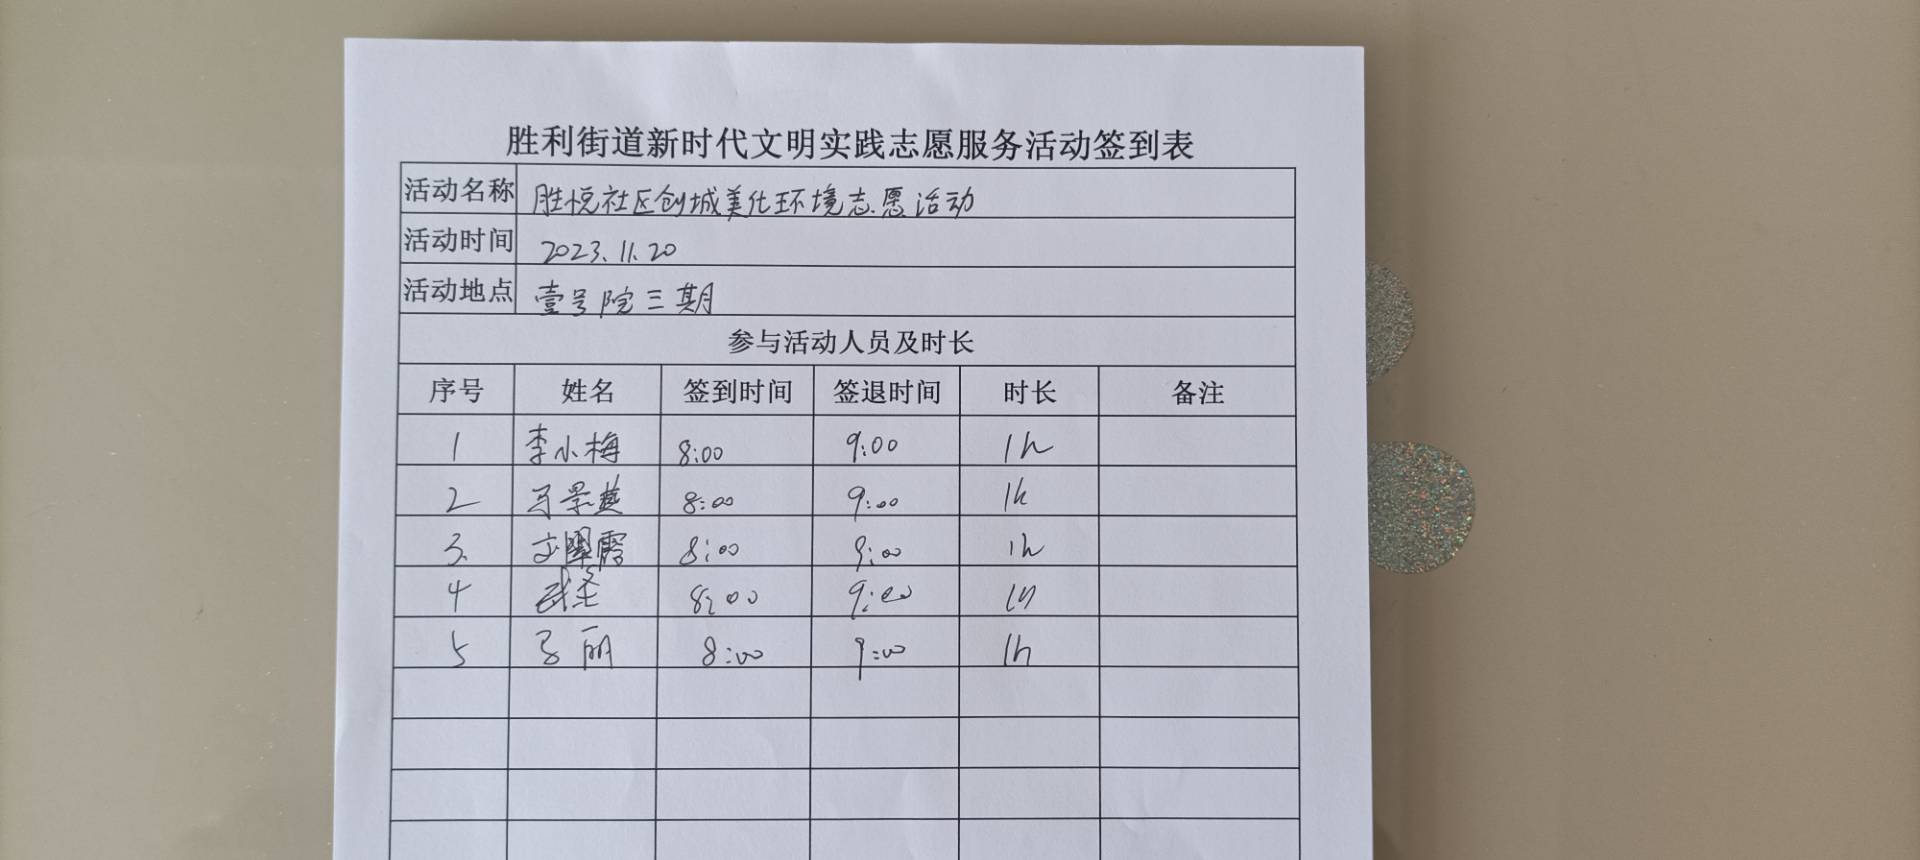 胜利街道新时代文明实践志愿服务活动签到表
活动名称 胜悦社区创城美化环境志愿活动
活动时间 2023.11.20
活动地点 壹号院三期
参与活动人员及时长
序号 姓名 签到时间 签退时间 时长 备注
1 李小梅 8:00 9:00 1h
2 8:00 9:00 1h
3. 8:00 9:00 1h
4 8:00 9:00 1h
5 马丽 8:00 9:00 1h